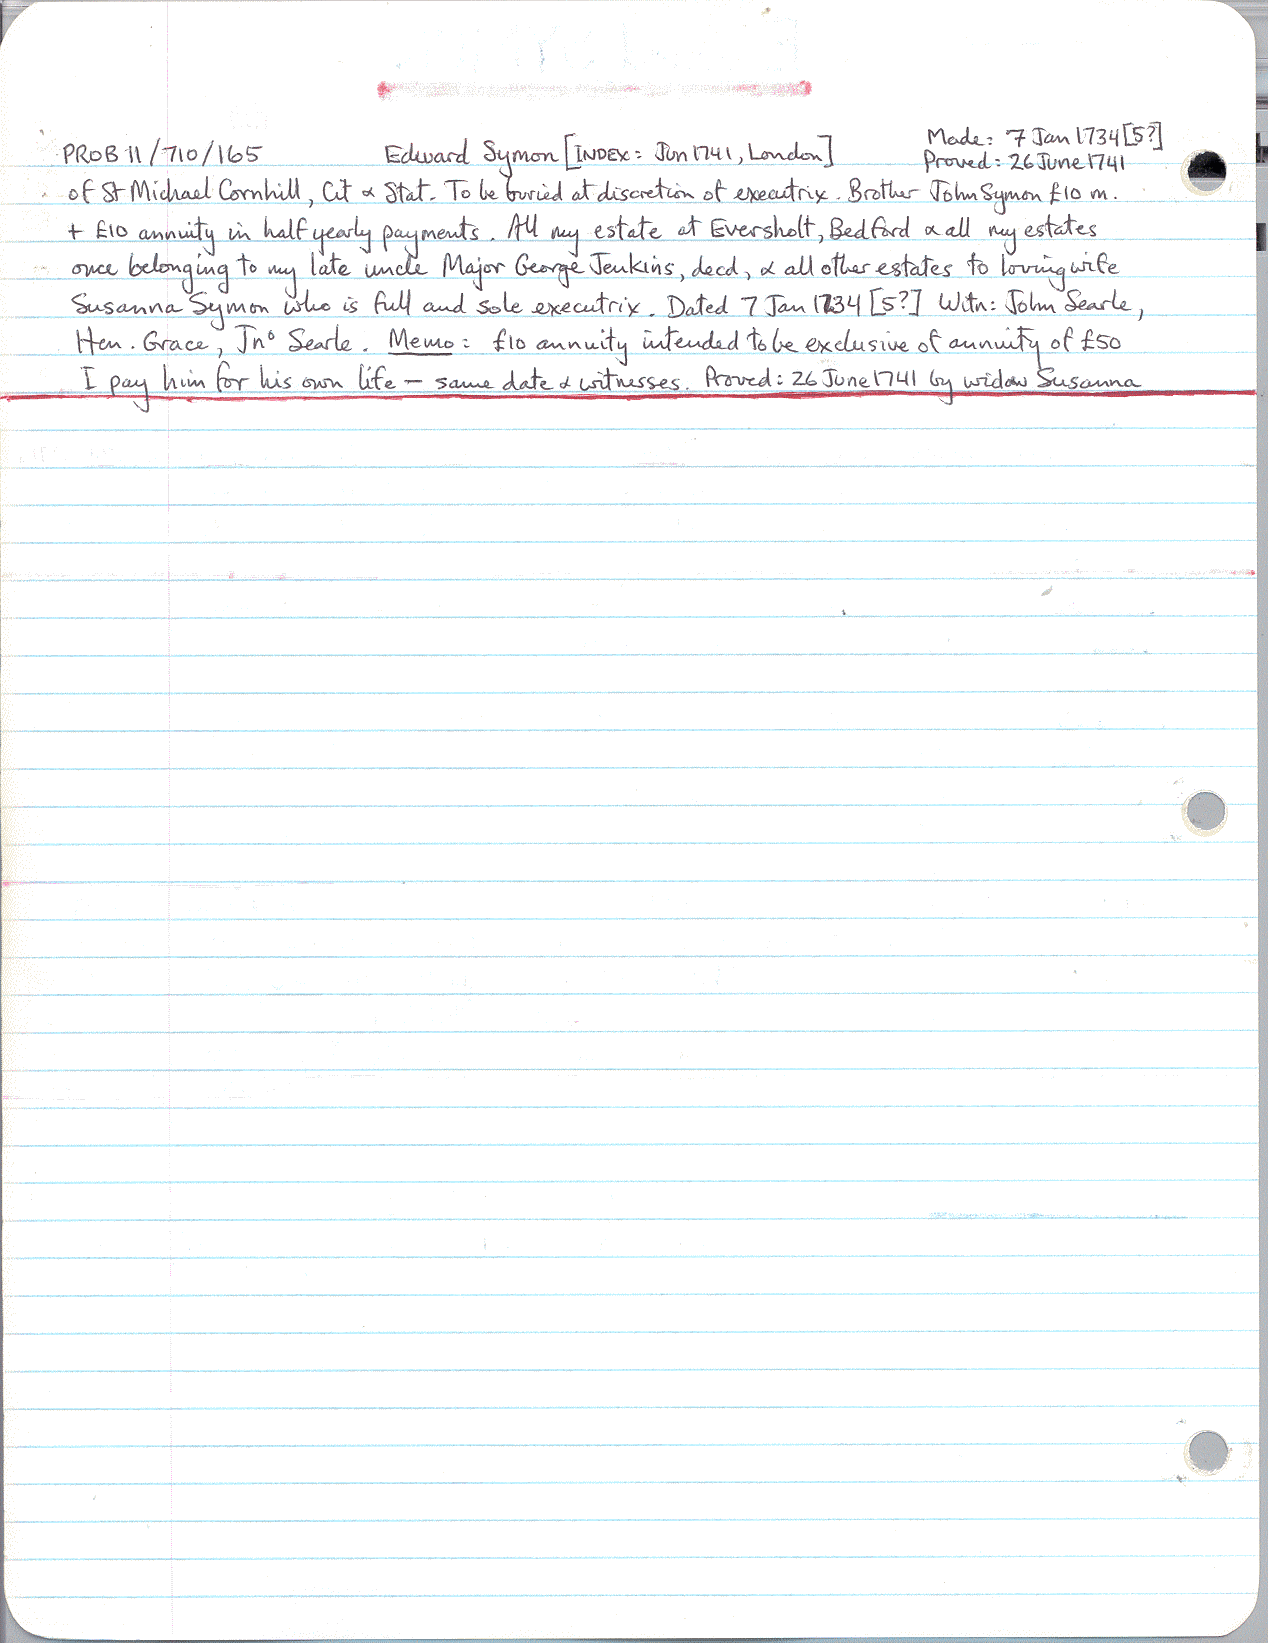 PROB 11/710/165 Edward Symon [INDEX: Jun 1741, London] Made: 7 Jan 1734[5?]
Proved: 26 June 1741
of St Michael Cornhill, Cit & Stat. To be buried at discretion of executrix. Brother John Symon £10 m.
+ £10 annuity in half yearly payments. All my estate at Eversholt, Bedford & all my estates
once belonging to my late uncle Major George Jenkins, decd, & all other estates to loving wife
Susanna Symon who is full and sole executrix. Dated 7 Jan 1734 [5?] Witn: John Searle,
Hen. Grace, Jno Searle. Memo: £10 annuity intended to be exclusive of annuity of £50
I pay him for his own life — same date & witnesses. Proved: 26 June 1741 by widow Susanna